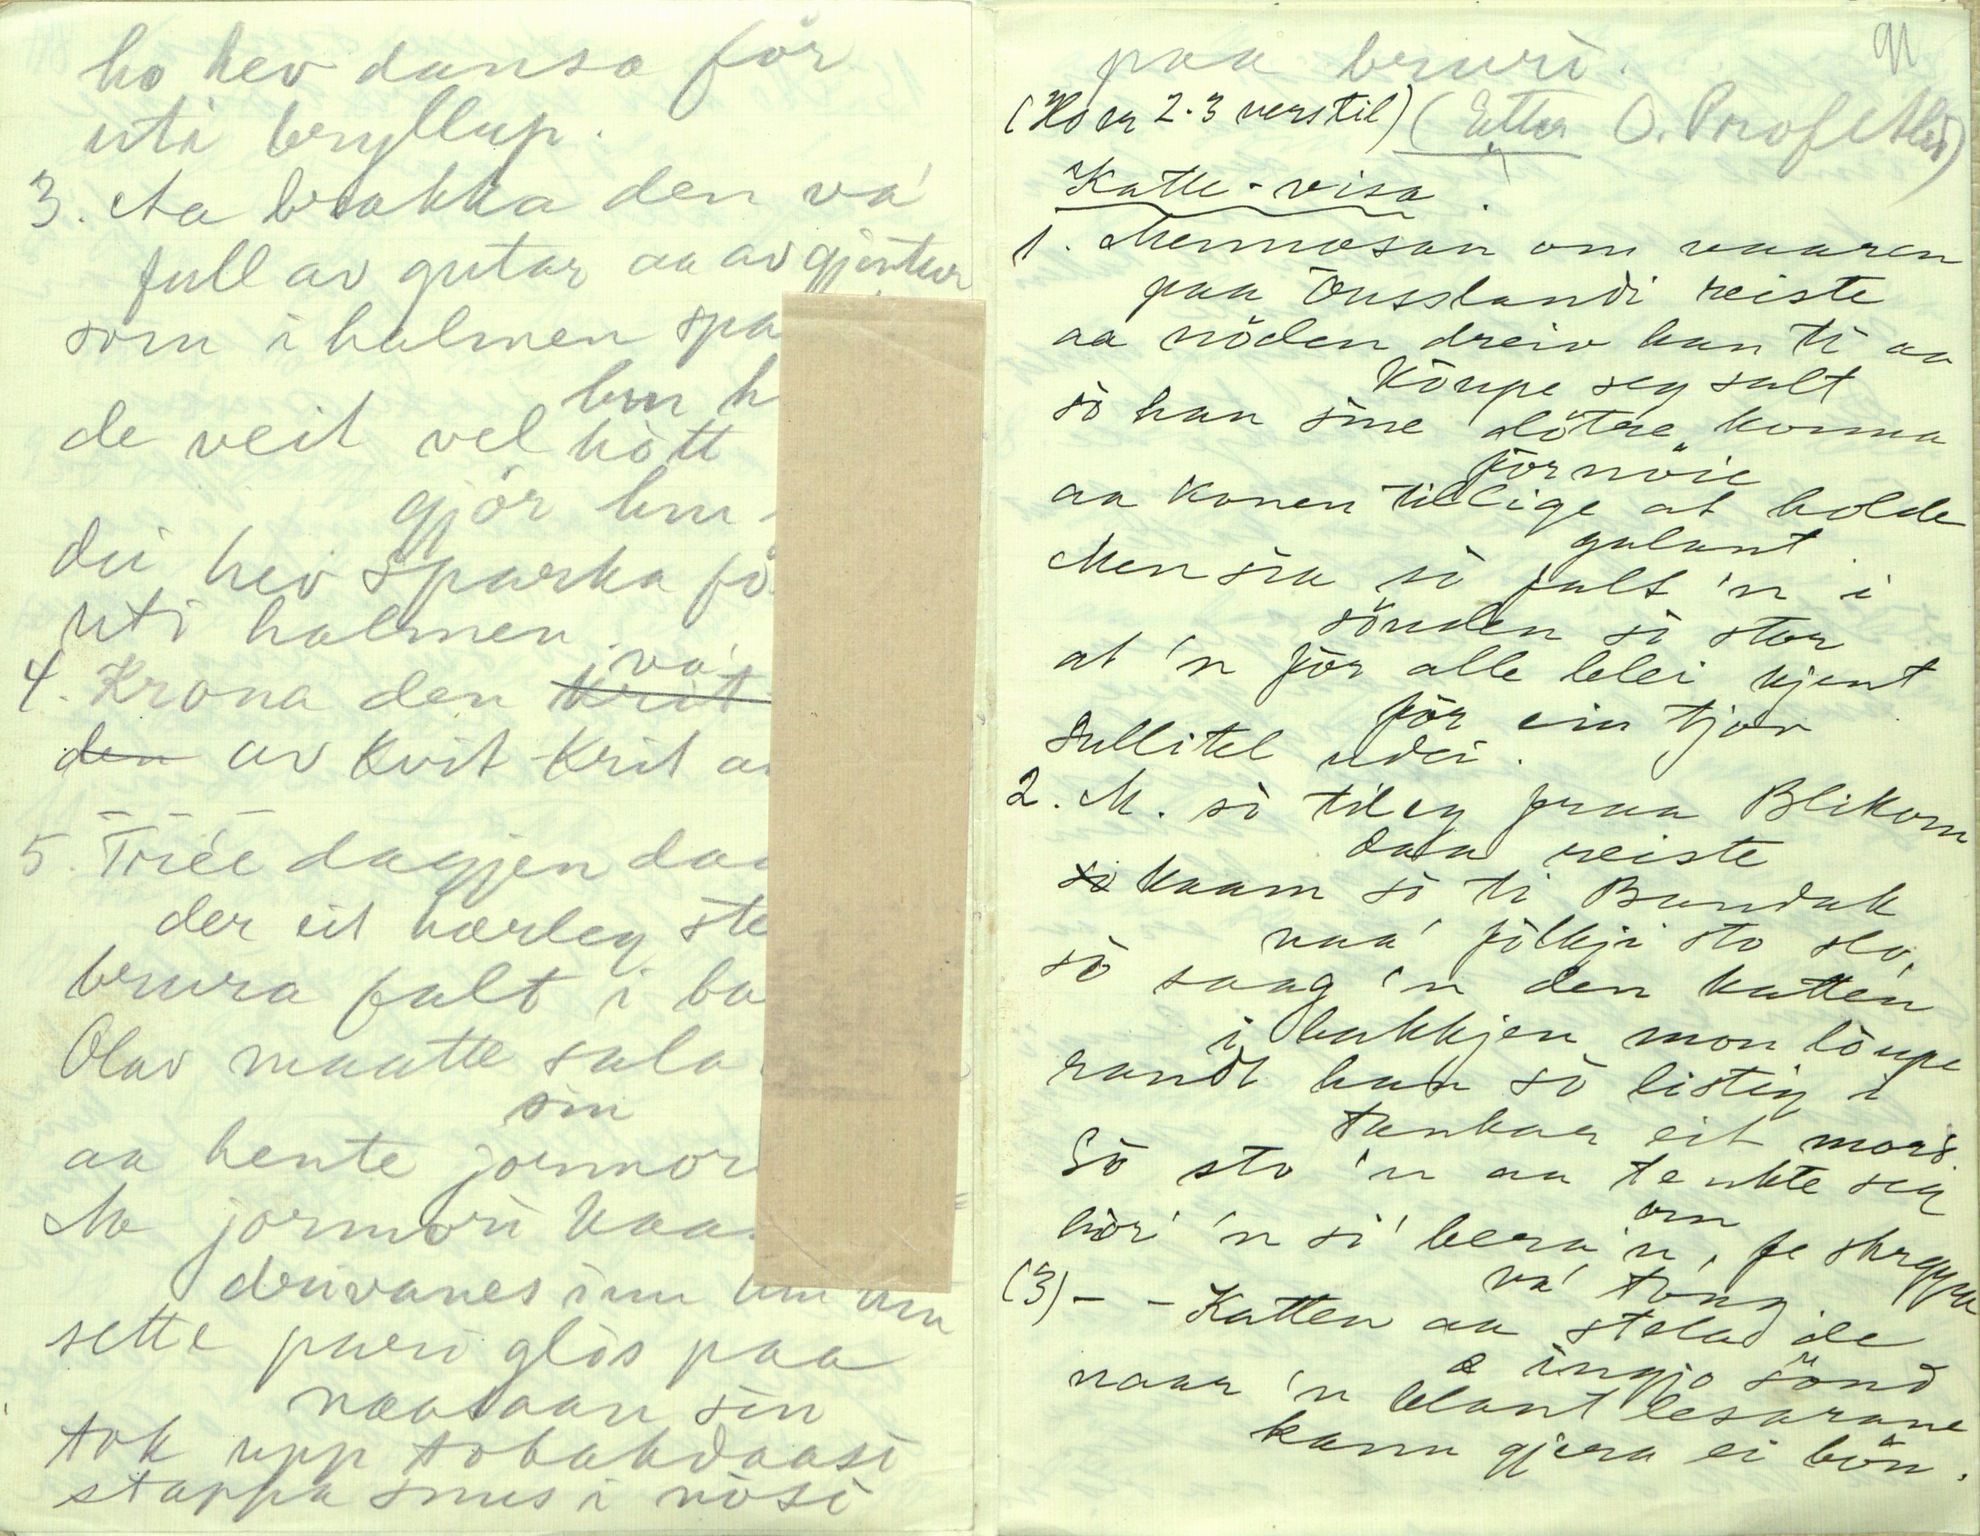 ho hev dansa för
uti bryllup.
3. Aa brakka den va'
full av gutar aa av gjentur
som i halmen spa
de veit vel hòtt
gjör
dei hev sparka fö
uti halmen.
va'
4. Krona den Krit
den av kvit krit a
5. Triée dagjen daa
der eit hærleg ste
brura falt i ba
Olav maatte sala
sin
aa hente jormor
Aa jormori kaa
drivanes inn
sette pari glös paa
naasaan sin
tok upp tobakdaasi
stappa snus i nösi
91
paa bruri.
(Ho er 2-3 vers til) (Etter O. Prof
Katte-visa.
1. Mennosan om vaaren
paa Ousslandi reiste
aa nöden dreiv han ti aa
köupe seg salt
sò han sine dötre konna
förnöie
aa konen tillige at holde
galant.
Men sia sò falt 'n i
sönden sò stor
at 'n för alle blei kjent
för ein tjov
Sullitel udei.
2. M. sò tileg fraa Blikom
daa reiste
sò kaam sò ti Bandak
naa' fölkji sto slo,
sò saag 'n den katten
i bakkjen mon löupe
randt han sò listig i
tankar eit mord.
Sò sto 'n aa tenkte seg
om
höri 'n si' bera 'n, fe skreppa
va' tong.
(3) - - Katten aa stela de
æ ingjo sönd
naar 'n blant lesarane
kann gjera ei bön.